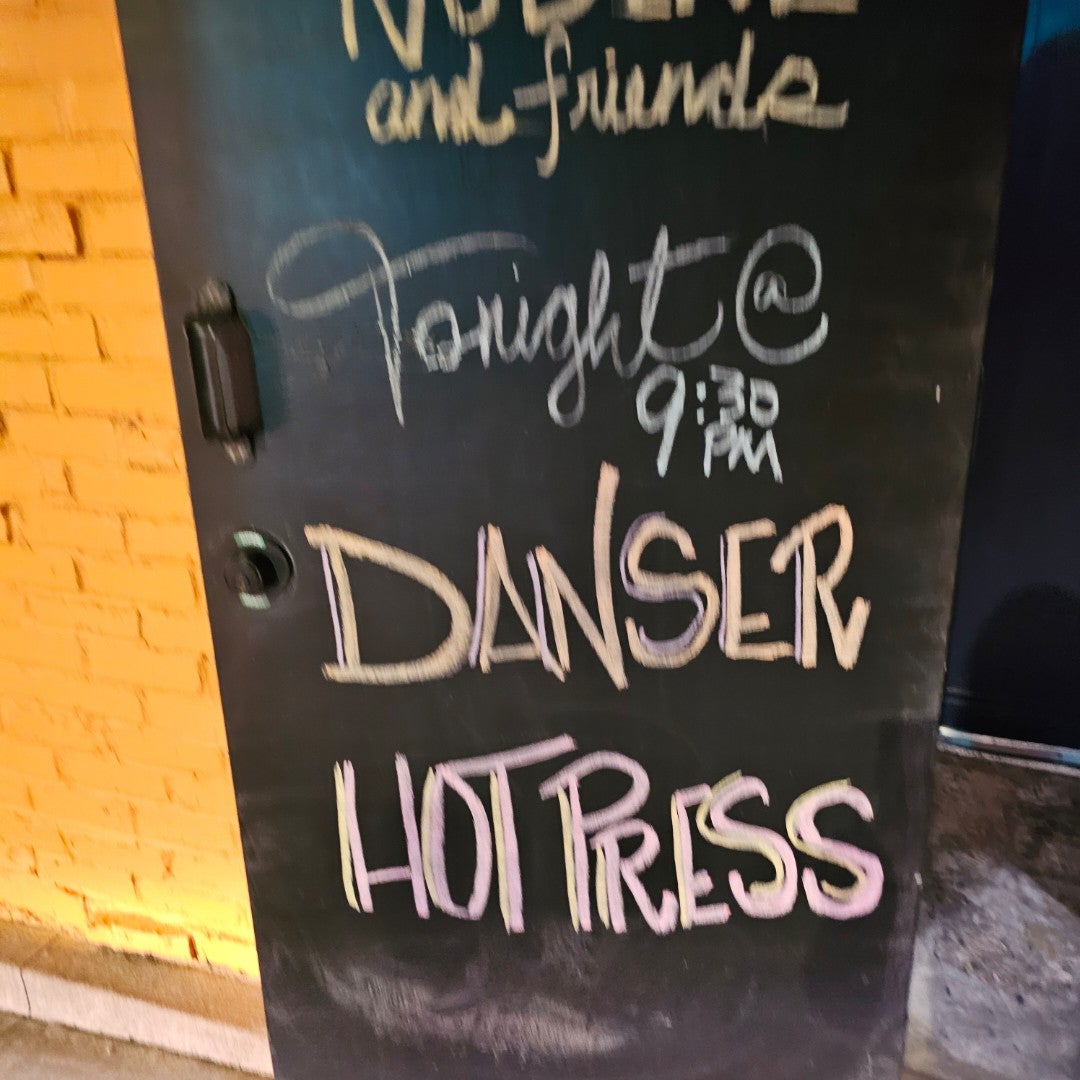 and friends
Tonight @
9:30
PM
DANSER
HOT PRESS